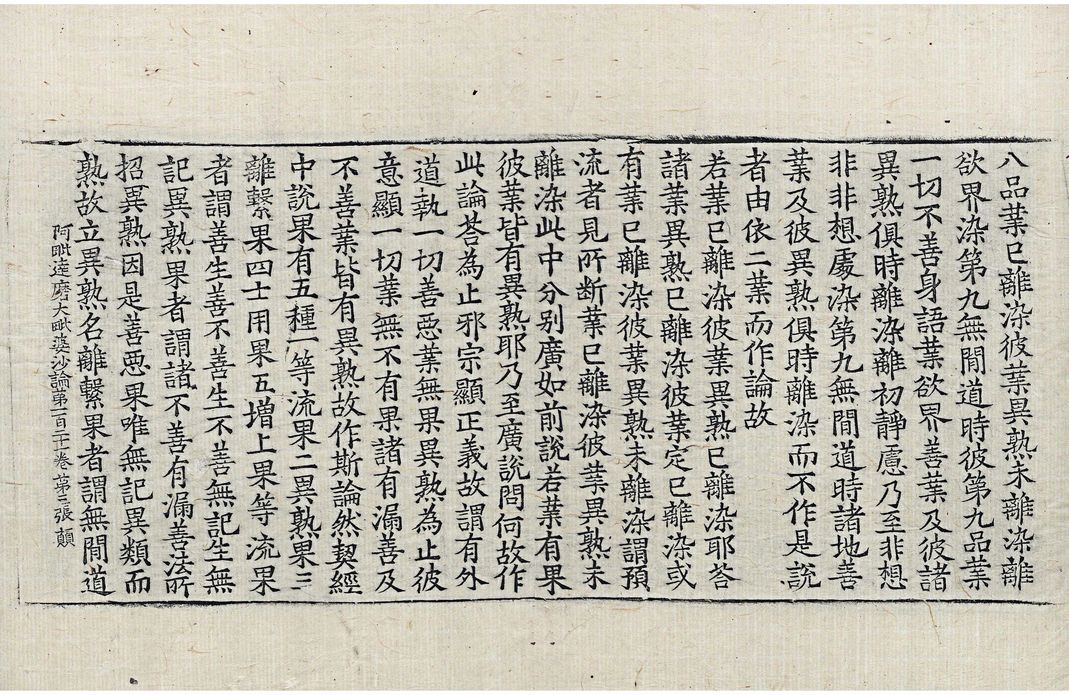 八品業已離染彼業異熟未離染離
欲界染第九無間道時彼第九品業
一切不善身語業欲界善業及彼諸
異熟俱時離染離初靜慮乃至非想
非非想處染第九無間道時諸地善
業及彼異熟俱時離染而不作是說
者由依二業而作論故
若業已離染彼業異熟已離染耶荅
諸業異熟已離染彼業定已離染或
有業已離染彼業異熟未離染謂預
流者見所斷業已離染彼業異熟未
離染此中分别廣如前說若業有果
彼業皆有異熟耶乃至廣說問何故作
此論荅為止邪宗顯正義故謂有外
道執一切善惡業無果異熟為止彼
意顯一切業無不有果諸有漏善及
不善業皆有異熟故作斯論然契經
中說果有五種一等流果二異熟果三
離繫果四士用果五增上果等流果
者謂善生善不善生不善無記生無
記異熟果者謂諸不善有漏善法所
招異熟因是善惡果唯無記異類而
熟故立異熟名離繫果者謂無間道
阿毗達磨大毗婆沙論第一百二十一卷 第三張 顛